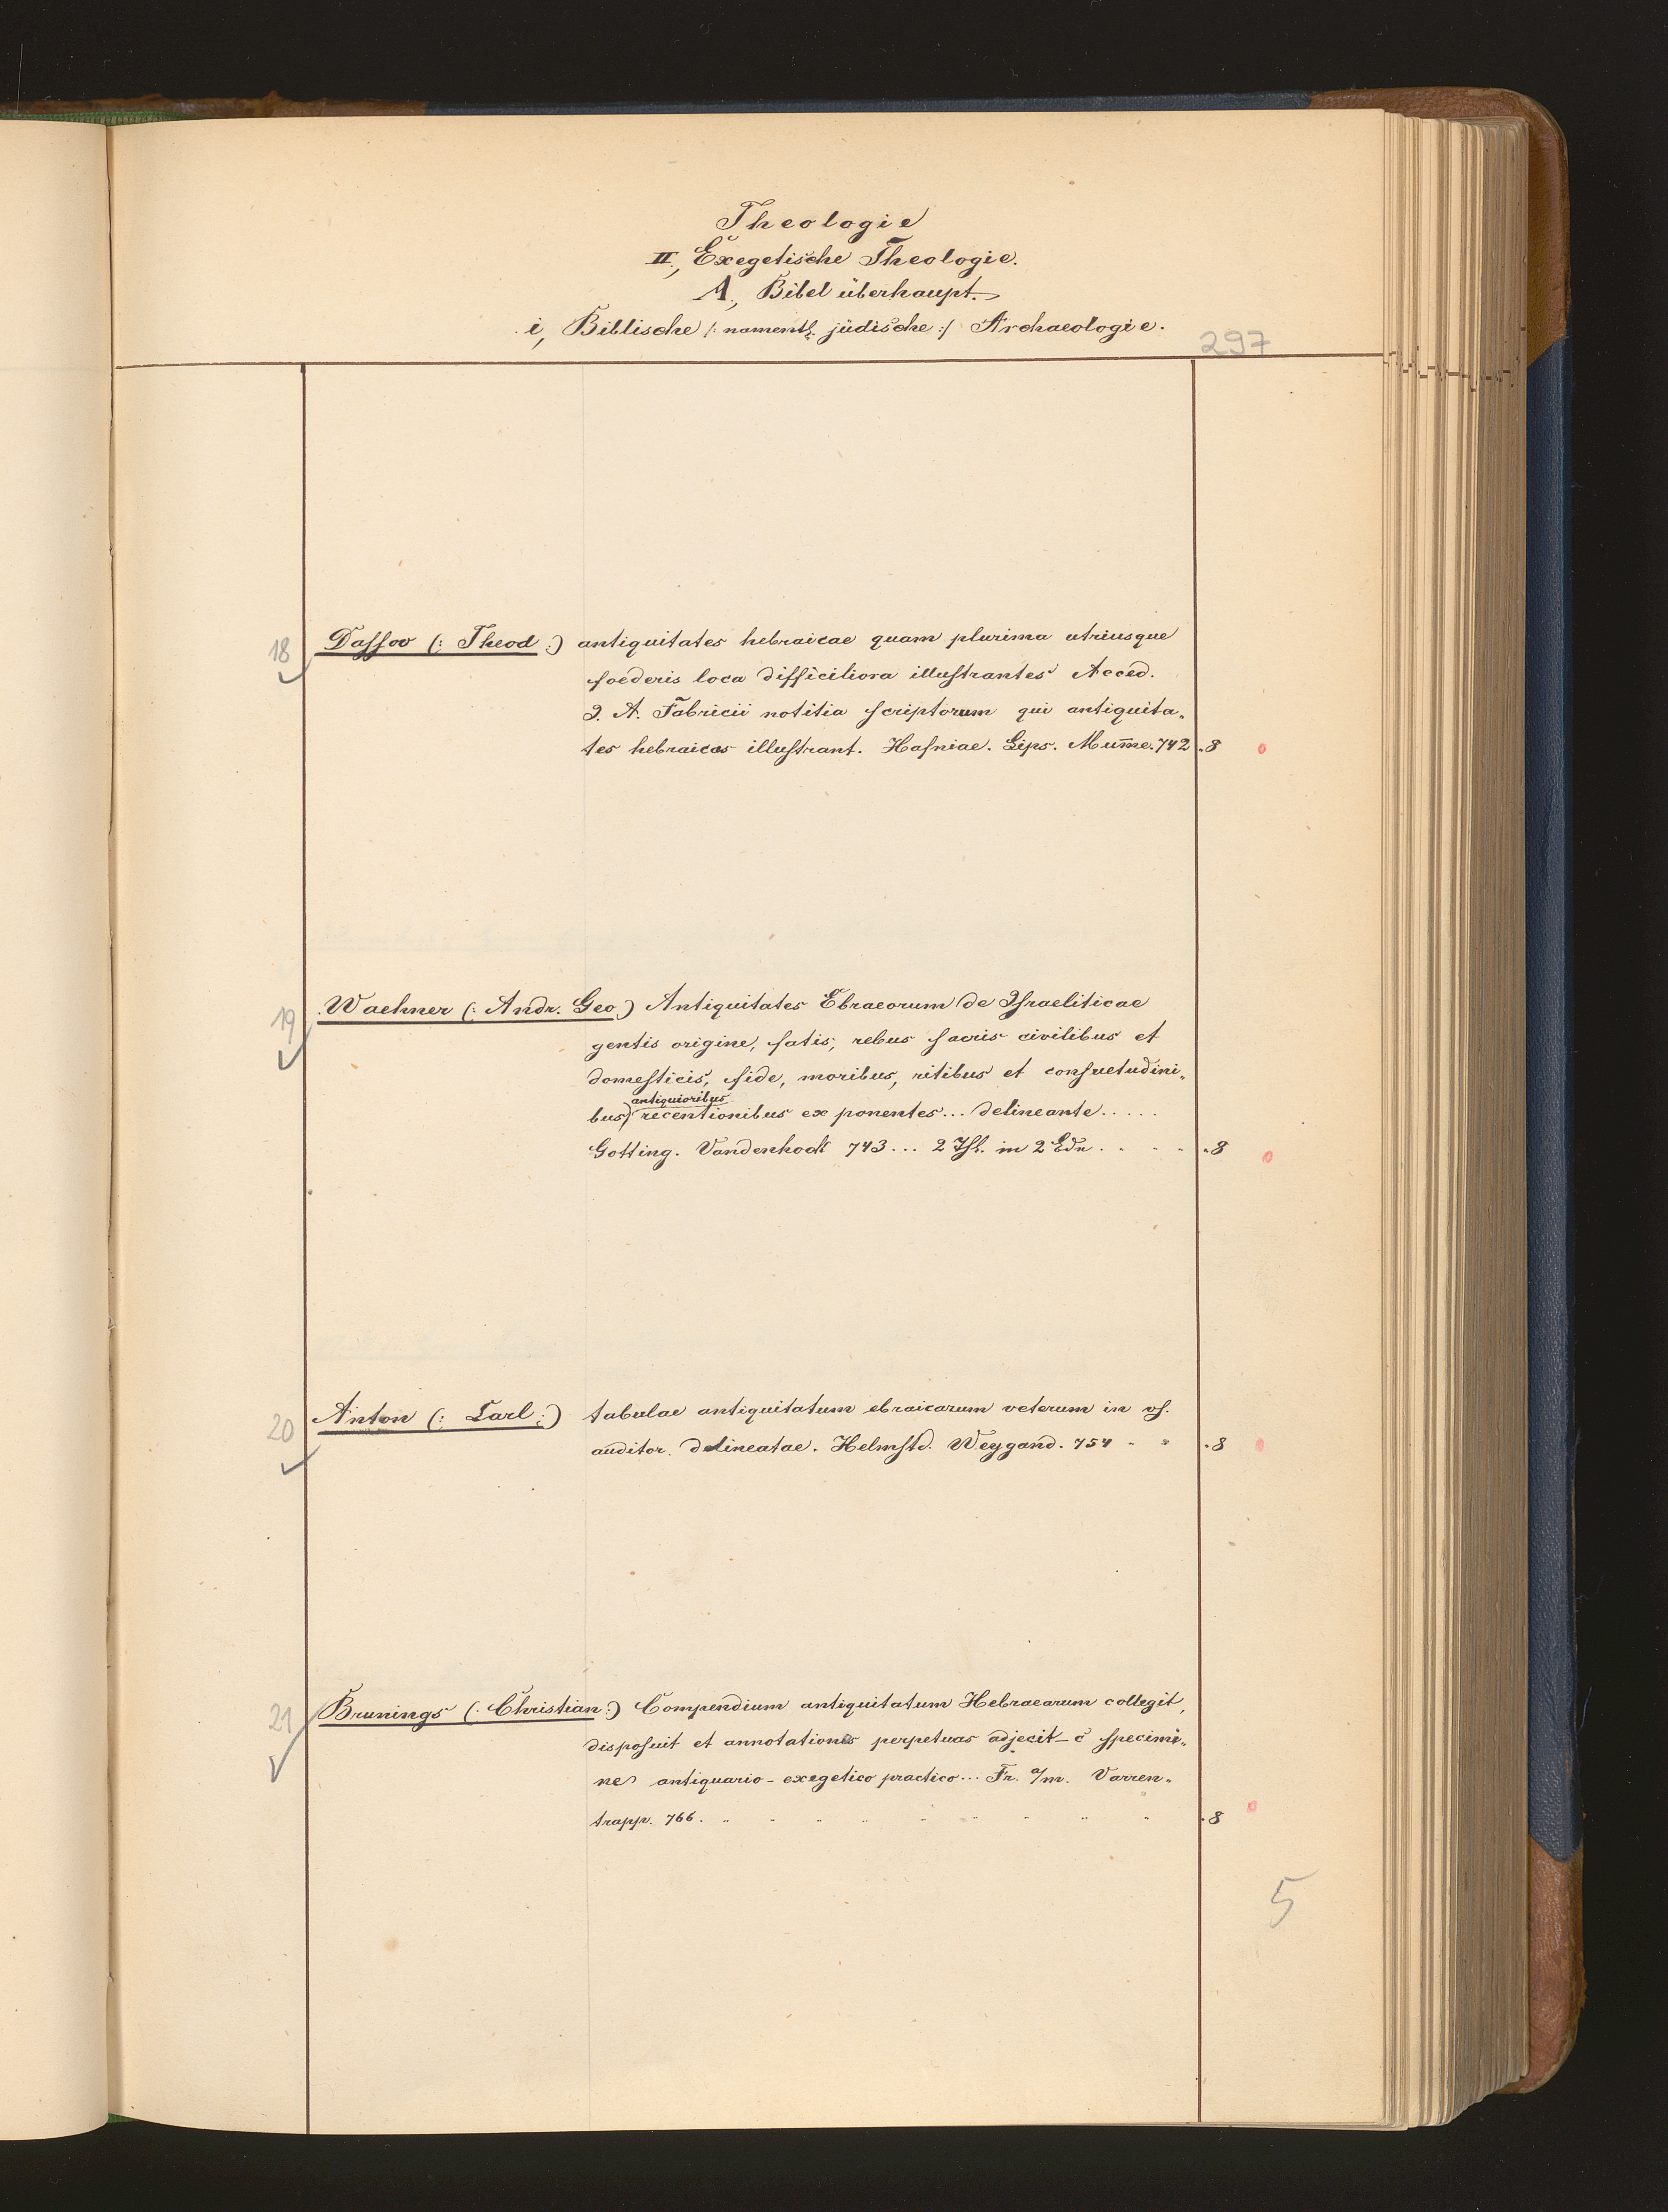 Theologie
II., Exegetische Theologie.
A., Bibel überhaupt.
i, Biblische /: namentl. jüdische :/ Archaeologie.
297
18 Dassov (: Theod :) antiquitates hebraicae quam plurima utriusque
foederis loca difficiliora illustrantes Acced.
J. A. Fabricii notitia scriptorum qui antiquita„
tes hebraicas illustrant. Hafniae. Lips. Mum̄e. 742 . 8 0
19 Waehner (: Andr. Geo) Antiquitates Ebraeorum de Israeliticae
gentis origine, fatis, rebus sacris civilibus et
domesticis, fide, moribus, ritibus et consuetudini„
antiquioribus
bus recentionibus ex ponentes... delineante.....
Gotting. Vandenhock 743... 2 Thl. in 2 Bdn . . . . . 8 0
20 Anton (: Carl :) tabulae antiquitatum ebraicarum veterum in us.
auditor. delineatae. Helmstd. Weygand. 754 . 8 0
21 Brunings (: Christian :) Compendium antiquitatum Hebraearum collegit,
disposuit et annotationes perpetuas adjecit - c̄ specimi„
ne antiquario - exegetico practico... Fr. a/m. Varren„
trapp. 766. . 8 0
5